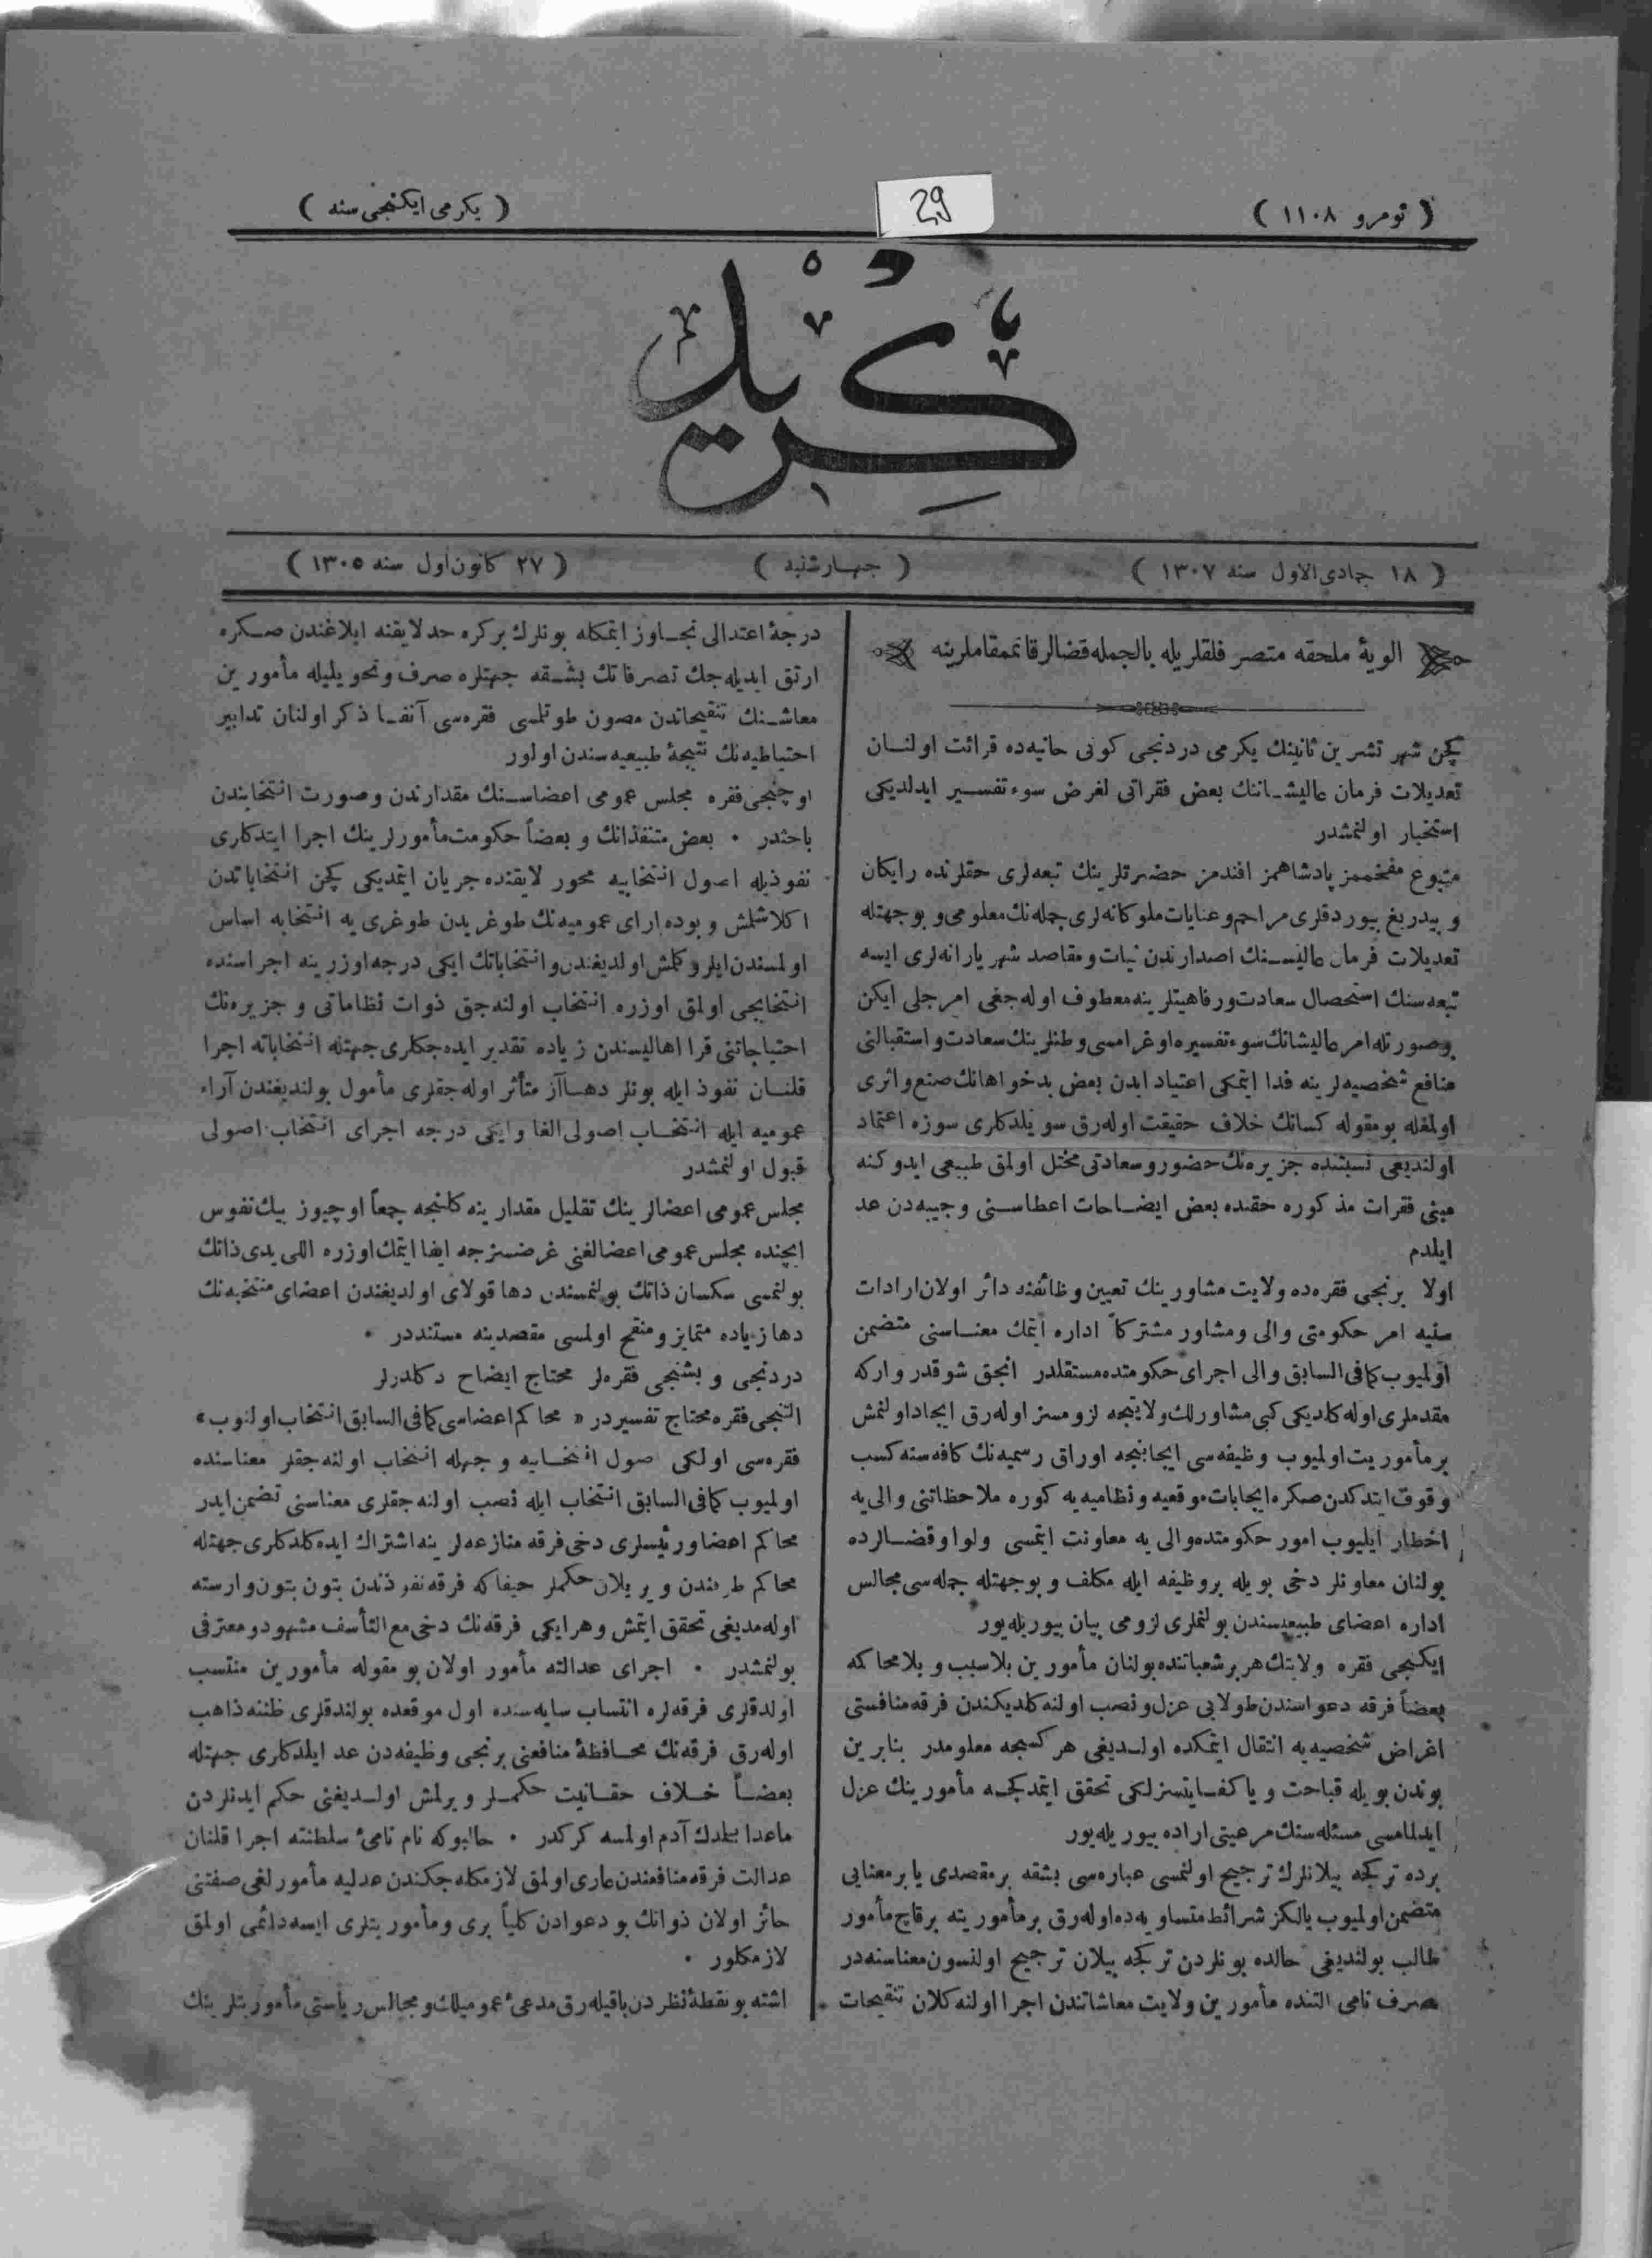 ( نومرو ١١٠٨ )
29
( یكرمی ایكنجی سنه )
كرید
( ١٨ جمادی الاول سنه ١٣٠٧ )
( چهارشنبه )
( ٢٧ كانون اول سنه ١٣٠٥ )
الویهٔ ملحقه متصرفلقلریله بالجمله قضالر قائممقاملرینه
كچن شهر تشرین ثانینك یكرمی دردنجی كونی حانیه‌ده قرائت اولنان
تعدیلات فرمان عالیشاننك بعض فقراتی لغرض سوء تفسیر ایدلدیكی
استخبار اولنمشدر
متبوع مفخممز پادشاهمز افندمز حضرتلرینك تبعه‌لری حقلرنده رایكان
و بیدریغ بیوردقلری مراحم و عنایات ملوكانه‌لری جمله‌نك معلومی و بوجهتله
تعدیلات فرمان عالیسنك اصدارندن نیات و مقاصد شهریارانه‌لری ایسه
تبعه‌سنك استحصال سعادت و رفاهیتلرینه معطوف اوله‌جغی امر جلی ایكن
بوصورتله امر عالیشانك سوء تفسیره اوغرامسی وطنلرینك سعادت و استقبالنی
منافع شخصیه‌لرینه فدا ایتمكی اعتیاد ایدن بعض بدخواهانك صنع و اثری
اولمغله بومقوله كسانك خلاف حقیقت اوله‌رق سویلدكلری سوزه اعتماد
اولندیغی نسبتده جزیره‌نك حضور و سعادتی مختل اولمق طبیعی ایدوكنه
مبنی فقرات مذكوره حقنده بعض ایضاحات اعطاسنی وجیبه‌دن عد
ایلدم
اولا برنجی فقره‌ده ولایت مشاورینك تعیین وظائفنه دائر اولان ارادات
سنیه امر حكومتی والی و مشاور مشتركاً اداره ایتمك معناسنی متضمن
اولمیوب كمافی السابق والی اجرای حكومتده مستقلدر انجق شوقدر واركه
مقدملری اوله‌كلدیكی كبی مشاورلك ولاینتجه لزومسز اوله‌رق ایجاد اولنمش
برمأموریت اولمیوب وظیفه‌سی ایجابنجه اوراق رسمیه‌نك كافه‌سنه كسب
وقوف ایتدكدن صكره ایجابات موقعیه و نظامیه‌یه كوره ملاحظاتنی والی‌یه
اخطار ایلیوب امور حكومتده والی‌یه معاونت ایتمسی ولوا و قضالرده
بولنان معاونلر دخی بویله بروظیفه ایله مكلف و بوجهتله جمله‌سی مجالس
اداره اعضای طبیعیسندن بولنملری لزومی بیان بیوریله‌یور
ایكنجی فقره ولایتك هر بر شعباتنده بولنان مأمورین بلاسبب و بلامحاكمه
بعضاً فرقه دعواسندن طولایی عزل و نصب اولنه‌كلدیكندن فرقه منافستی
اغراض شخصیه‌یه انتقال ایتمكده اولدیغی هركسجه معلومدر بنابرین
بوندن بویله قباحت و یا كفایتسزلكی تحقق ایتمدكجه مأمورینك عزل
ایدلمامسی مسئله‌سنك مرعیتی اراده بیوریله‌یور
برده تركجه بیلانلرك ترجیح اولنمسی عباره‌سی بشقه برمقصدی یا برمعنایی
متضمن اولمیوب یالكز شرائط متساویه‌ده اوله‌رق برمأموریته برقاچ مأمور
طالب بولندیغی حالده بونلردن تركجه بیلان ترجیح اولنسون معناسنه‌در
صرف نامی التنده مأمورین ولایت معاشاتندن اجرا اولنه‌كلان تنقیحات
درجهٔ اعتدالی تجاوز ایتمكله بونلرك بركره حد لایقنه ابلاغندن صكره
ارتق ایدیله‌جك تصرفاتك بشقه جهتلره صرف و تحویلیله مأمورین
معاشنك تنقیحاتدن مصون طوتلمسی فقره‌سی آنفا ذكر اولنان تدابیر
احتیاطیه‌نك نتیجهٔ طبیعیه‌سندن اولور
اوچنجی فقره مجلس عمومی اعضاسنك مقدارندن و صورت انتخابندن
باحثدر ٠ بعض متنفذانك و بعضاً حكومت مأمورلرینك اجرا ایتدكلری
نفوذیله اصول انتخابیه محور لایقنده جریان ایتمدیكی كچن انتخاباتدن
اكلاشلمش و بوده ارای عمومیه‌نك طوغریدن طوغری‌یه انتخابه اساس
اولمسندن ایلرو كلمش اولدیغندن و انتخاباتك ایكی درجه اوزرینه اجراسنده
انتخابجی اولمق اوزره انتخاب اولنه‌جق ذوات نظاماتی و جزیره‌نك
احتیاجاتنی قرا اهالیسندن زیاده تقدیر ایده‌جكلری جهتله انتخاباته اجرا
قلنان نفوذ ایله بونلر دها آز متأثر اوله‌جقلری مأمول بولندیغندن آراء
عمومیه ایله انتخاب اصولی الغا و ایكی درجه اجرای انتخاب اصولی
قبول اولنمشدر
مجلس عمومی اعضالرینك تقلیل مقدارینه كلنجه جمعاً اوچیوز بیك نفوس
ایچنده مجلس عمومی اعضالغنی غرضسزجه ایفا ایتمك اوزره اللی یدی ذاتك
بولنمسی سكسان ذاتك بولنمسندن دها قولای اولدیغندن اعضای منتخبه‌نك
دها زیاده متمایز و منقح اولمسی مقصدینه مستنددر ٠
دردنجی و بشنجی فقره‌لر محتاج ایضاح دكلدرلر
التنجی فقره محتاج تفسیردر « محاكم اعضاسی كمافی السابق انتخاب اولنوب »
فقره‌سی اولكی اصول انتخابیه وجهله انتخاب اولنه‌جقلر معناسنده
اولمیوب كمافی السابق انتخاب ایله نصب اولنه‌جقلری معناسنی تضمن ایدر
محاكم اعضا و رئیسلری دخی فرقه منازعه‌لرینه اشتراك ایده‌كلدكلری جهتله
محاكم طرفندن ویریلان حكملر حیفا كه فرقه نفوذندن بتون بتون وارسته
اوله‌مدیغی تحقق ایتمش و هرایكی فرقه‌نك دخی مع التأسف مشهود و معترفی
بولنمشدر ٠ اجرای عدالته مأمور اولان بومقوله مأمورین منتسب
اولدقلری فرقه‌لره انتساب سایه‌سنده اول موقعده بولندقلری ظننه ذاهب
اوله‌رق فرقه‌نك محافظهٔ منافعنی برنجی وظیفه‌دن عد ایلدكلری جهتله
بعضاً خلاف حقانیت حكملر ویرلمش اولدیغنی حكم ایدنلردن
ماعدا بیلمدك آدم اولمسه كركدر ٠ حالبوكه نام نامیٔ سلطنته اجرا قلنان
عدالت فرقه منافعندن عاری اولمق لازمكله‌جكندن عدلیه مأمورلغی صفتنی
حائز اولان ذواتك بو دعوادن كلیاً بری و مأموریتلری ایسه دائمی اولمق
لازمكلور ٠
اشته بو نقطهٔ نظردن باقیله‌رق مدعیٔ عمومیلك و مجالس ریاستی مأموریتلرینك